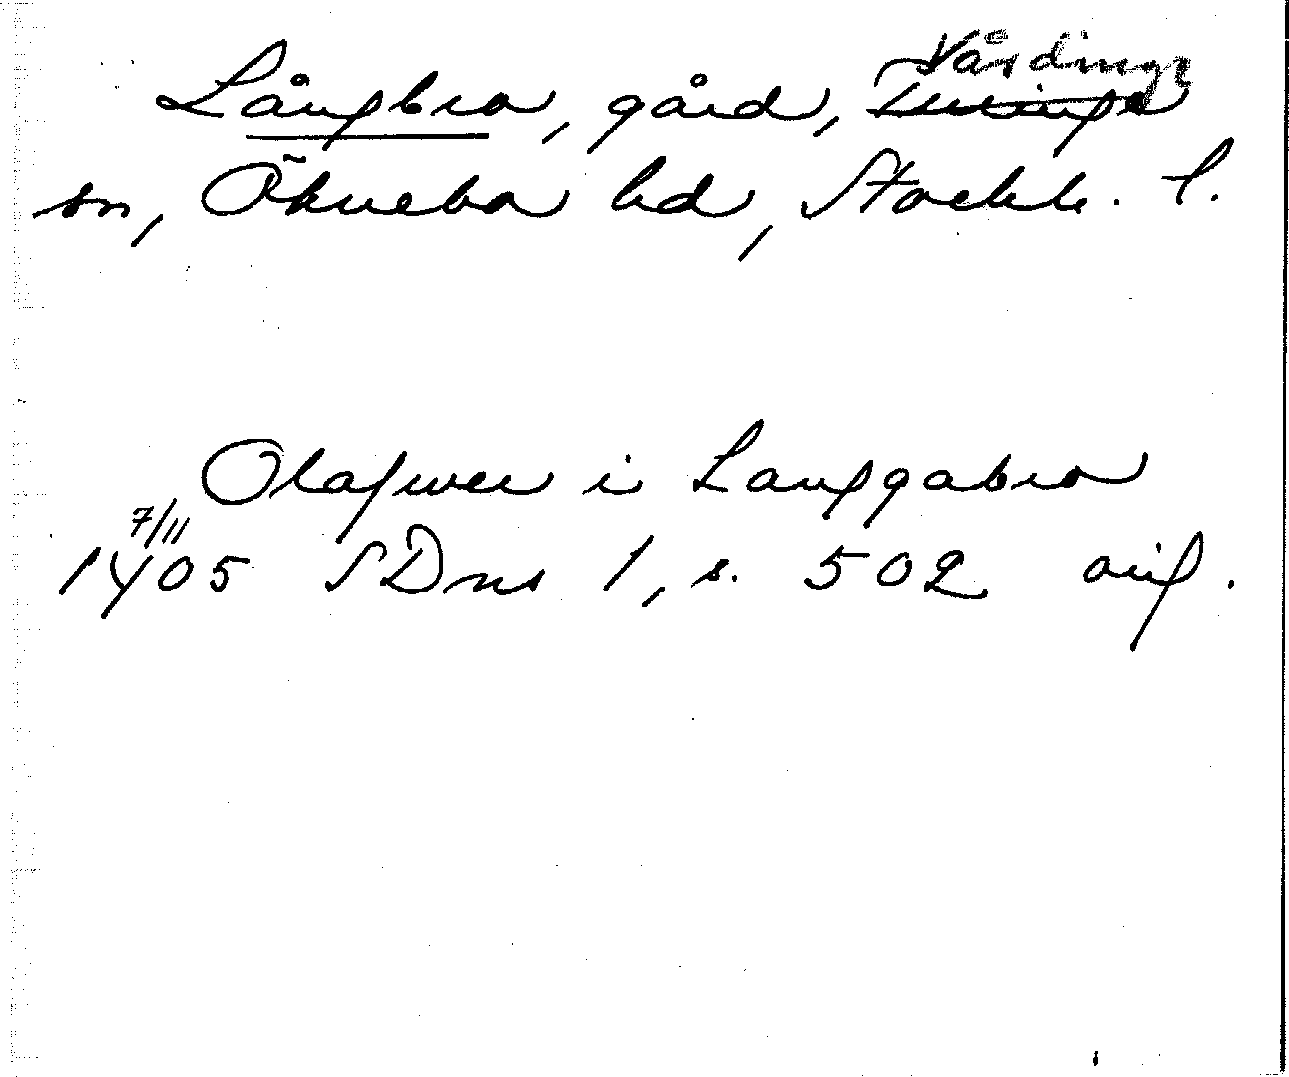 Vårdinge
Långbro, gård, Turinge
sn, Öknebo hd, Stockh. l.
Olafwer i Langgabro
7/11
1405 SDns 1, s. 502 orig.